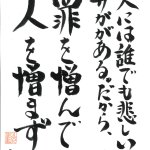 人には誰でも悲しい
サガがある。だから、
罪を憎んで
人を憎まず